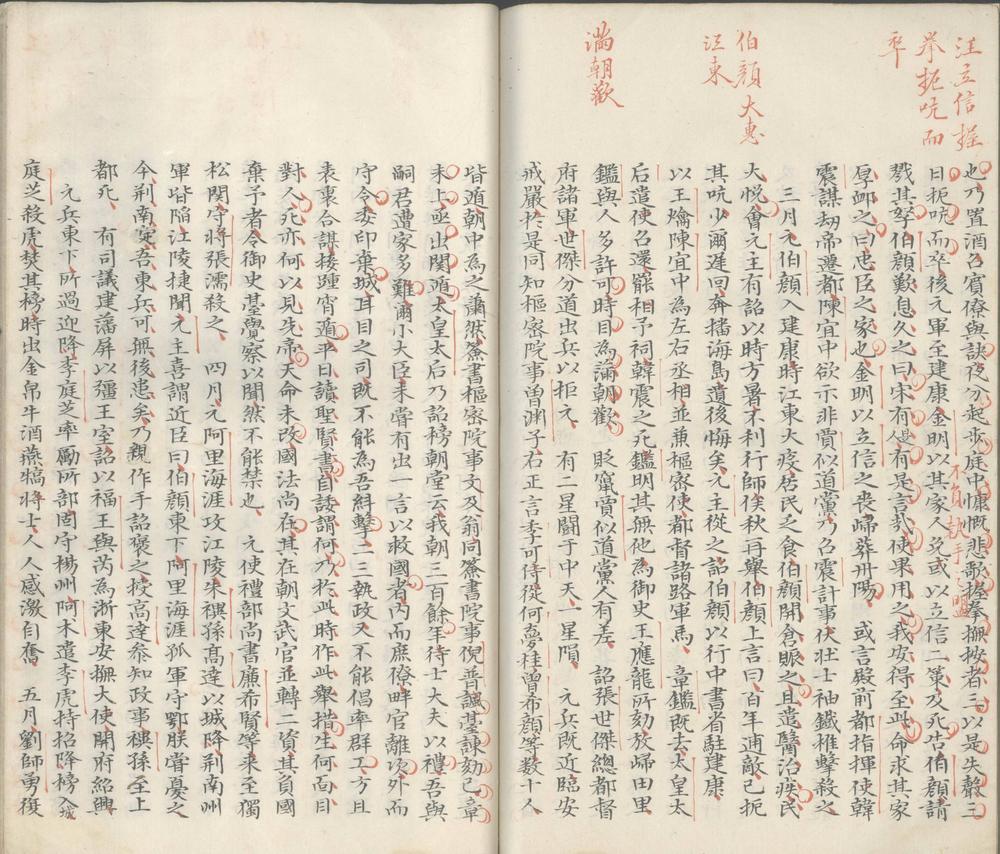 汪立信握
拳扼吭而
卒
伯顏大惠
江東
滿朝歡
也乃置酒召賓僚與訣夜分起步庭中慷慨悲歌握拳撫按者三以是失聲三
日扼吭而卒後元軍至建康金明以其家人免或以立信二策及死告伯顏請
不負執手之盟
戮其孥伯顏歎息久之曰宋有是人有是言哉使果用之我安得至此命求其家
厚卹之曰忠臣之家也金明以立信之喪歸葬丹陽 或言殿前都指揮使韓
震謀劫帝遷都陳宜中欲示非賈似道黨乃召震計事伏壯士袖鐵椎擊殺之
三月元伯顏入建康時江東大疫居民乏食伯顏開倉賑之且遣醫治疾民
大悅會元主有詔以時方暑不利行師俟秋再舉伯顏上言曰百年逋敵已扼
其吭少爾遲回奔播海島遺後悔矣元主從之詔伯顏以行中書省駐建康
以王爚陳宜中為左右丞相並兼樞密使都督諸路軍馬 章鑑既去太皇太
后遣使召還罷相予祠韓震之死鑑明其無他為御史王應龍所劾放歸田里
鑑與人多許可時目為滿朝歡 貶竄賈似道黨人有差 詔張世傑總都督
府諸軍世傑分道出兵以拒元 有二星鬪于中天一星隕 元兵既近臨安
戒嚴於是同知樞密院事曾淵子右正言李可侍從何夢桂曾希顏等數十人
皆遁朝中為之蕭然簽書樞密院事文及翁同簽書院事倪普諷臺諫劾己章
未上亟出關遁太皇太后乃詔榜朝堂云我朝三百餘年待士大夫以禮吾與
嗣君遭家多難爾小大臣未嘗有出一言以救國者內而庶僚畔官離次外而
守令委印棄城耳目之司既不能為吾糾擊二三執政又不能倡率群工方且
表裏合謀接踵宵遁平日讀聖賢書自諉謂何乃於此時作此舉措生何面目
對人死亦何以見先帝天命未改國法尚在其在朝文武官並轉二資其負國
棄予者令御史臺覺察以聞然不能禁也 元使禮部尚書廉希賢等來至獨
松關守將張濡殺之 四月元阿里海涯攻江陵朱禩孫高達以城降荆南州
軍皆陷江陵捷聞元主喜謂近臣曰伯顏東下阿里海涯孤軍守鄂朕嘗憂之
今荆南定吾東兵可無後患矣乃親作手詔褒之授高達參知政事禩孫至上
都死 有司議建藩屏以彊王室詔以福王與芮為浙東安撫大使開府紹興
元兵東下所過迎降李庭芝率勵所部固守楊州阿术遣李虎持招降榜入城
庭芝殺虎焚其榜時出金帛牛酒燕犒將士人人感激自奮 五月劉師勇復